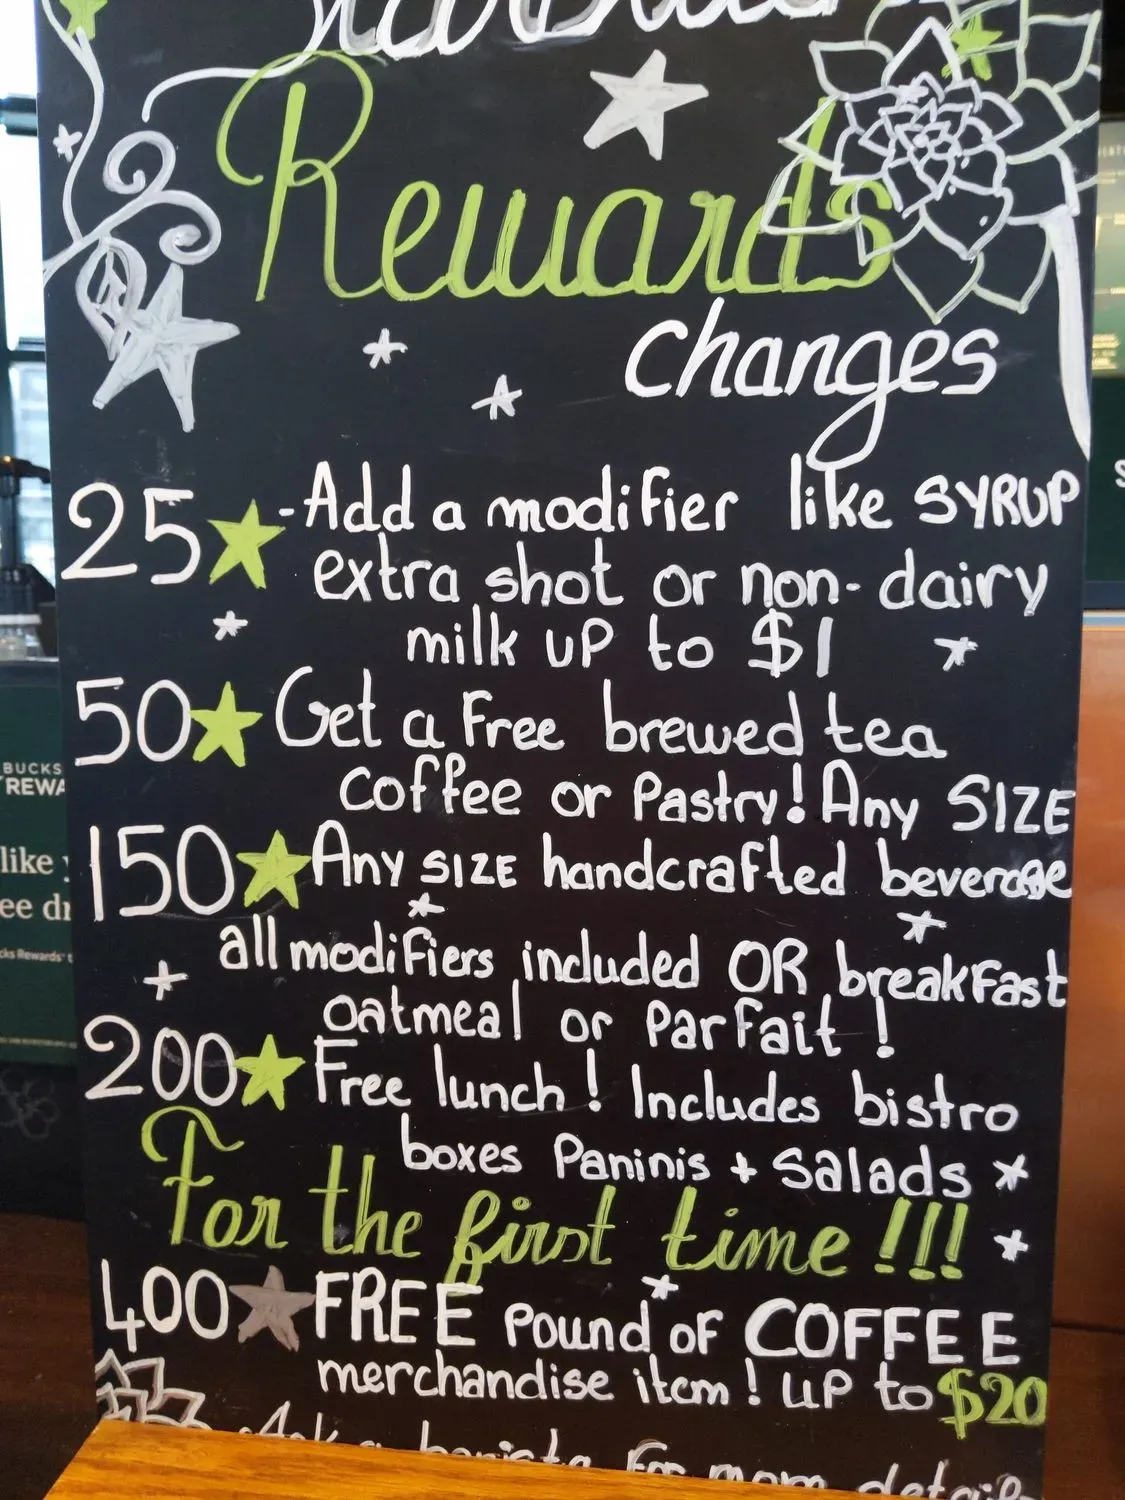 Rewards
changes
25 - Add a modifier like SYRUP
extra shot or non-dairy
milk up to $1
50 Get a Free brewed tea
coffee or Pastry! Any SIZE
150 Any SIZE handcrafted beverage
all modifiers included OR breakfast
oatmeal or Parfait!
200 Free lunch! Includes bistro
boxes Paninis + Salads
For the first time!!!
400 FREE Pound of COFFEE
merchandise item! up to $20
Ask a barista For more details
BUCKS
REWA
like
ee
cks Rewards